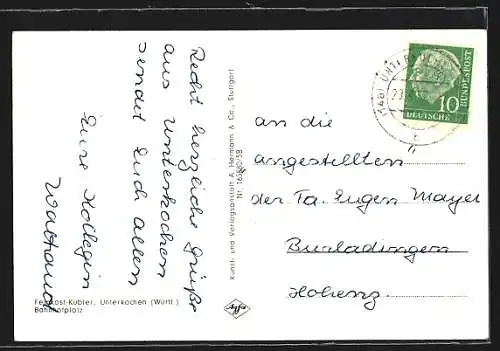 Recht herzliche Grüße
aus Unterkochen
sendet Euch allen
Eure Kollegin
Waltraud
Feinkost-Kübler, Unterkochen (Württ.)
Bahnhofplatz
Kunst- und Verlagsanstalt A. Hermann & Co., Stuttgart
Agfa
DEUTSCHE
BUNDESPOST
10
an die
angestellten
der Fa. Eugen Mayer
Burladingen
Hohenz